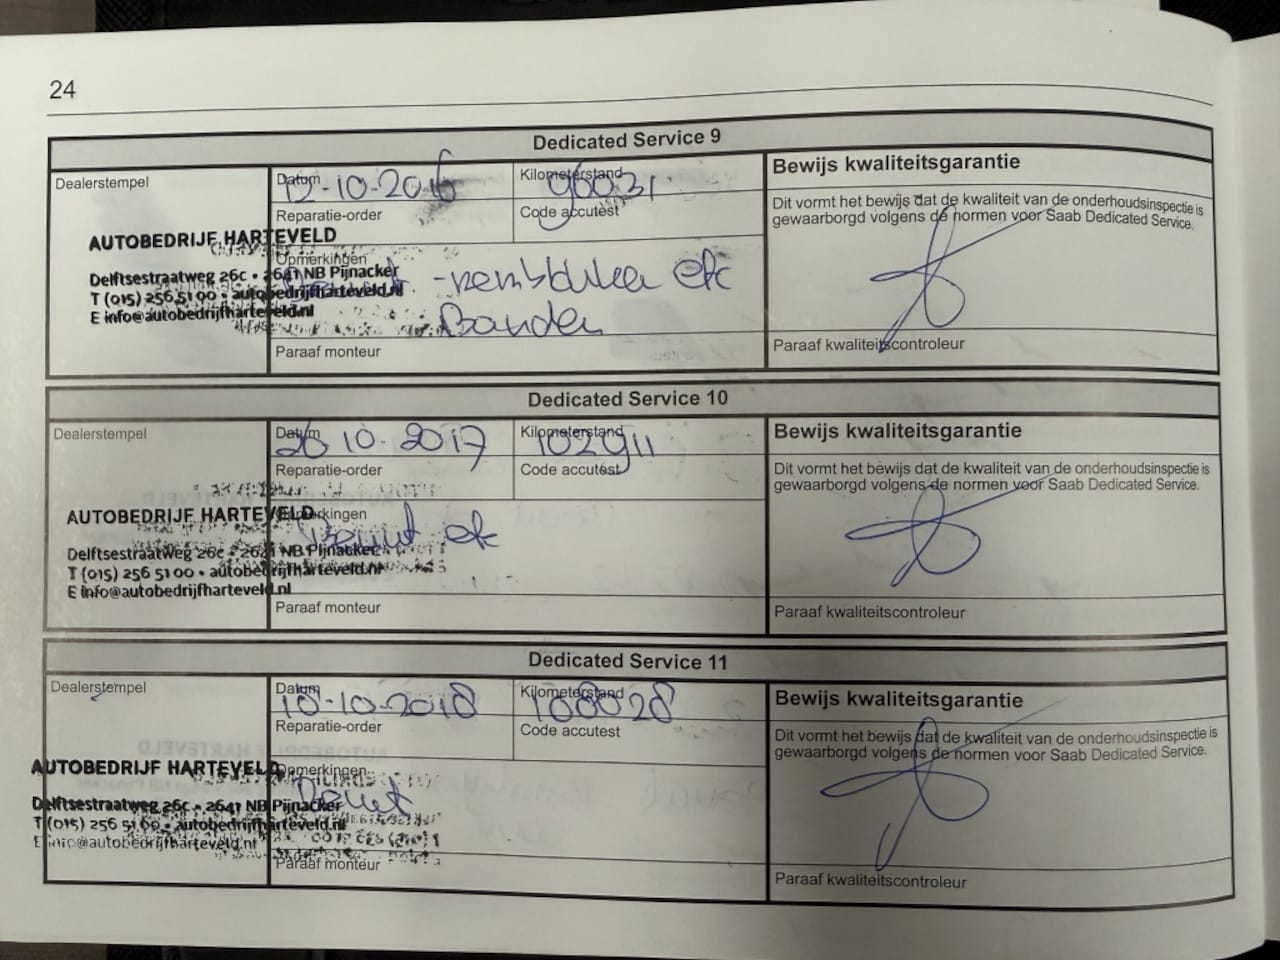 24
Dedicated Service 9
Dealerstempel
Datum
12-10-2016
Kilometerstand
96031
Bewijs kwaliteitsgarantie
Dit vormt het bewijs dat de kwaliteit van de onderhoudsinspectie is
gewaarborgd volgens de normen voor Saab Dedicated Service.
Reparatie-order
Code accutest
AUTOBEDRIJF HARTEVELD
Delftsestraatweg 26c • 2641 NB Pijnacker
T (015) 256 51 00 • autobedrijfharteveld.nl
E info@autobedrijfharteveld.nl
Opmerkingen
etc
Banden
Paraaf monteur
Paraaf kwaliteitscontroleur
Dedicated Service 10
Dealerstempel
Datum
26 10-2017
Kilometerstand
102911
Bewijs kwaliteitsgarantie
Dit vormt het bewijs dat de kwaliteit van de onderhoudsinspectie is
gewaarborgd volgens de normen voor Saab Dedicated Service.
Reparatie-order
Code accutest
AUTOBEDRIJF HARTEVELD
Delftsestraatweg 26c • 2641 NB Pijnacker
T (015) 256 51 00 • autobedrijfharteveld.nl
E info@autobedrijfharteveld.nl
Opmerkingen
etc
Paraaf monteur
Paraaf kwaliteitscontroleur
Dedicated Service 11
Dealerstempel
Datum
18-10-2018
Kilometerstand
Bewijs kwaliteitsgarantie
Dit vormt het bewijs dat de kwaliteit van de onderhoudsinspectie is
gewaarborgd volgens de normen voor Saab Dedicated Service.
Reparatie-order
Code accutest
AUTOBEDRIJF HARTEVELD
Delftsestraatweg 26c • 2641 NB Pijnacker
T (015) 256 51 00 • autobedrijfharteveld.nl
E info@autobedrijfharteveld.nl
Opmerkingen
Paraaf monteur
Paraaf kwaliteitscontroleur